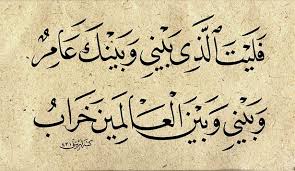 فَلَيْتَ الَّذِي بَيْنِي وَبَيْنَكَ عَامِرٌ
وَبَيْنِي وَبَيْنَ الْعَالَمِينَ خَرَابُ